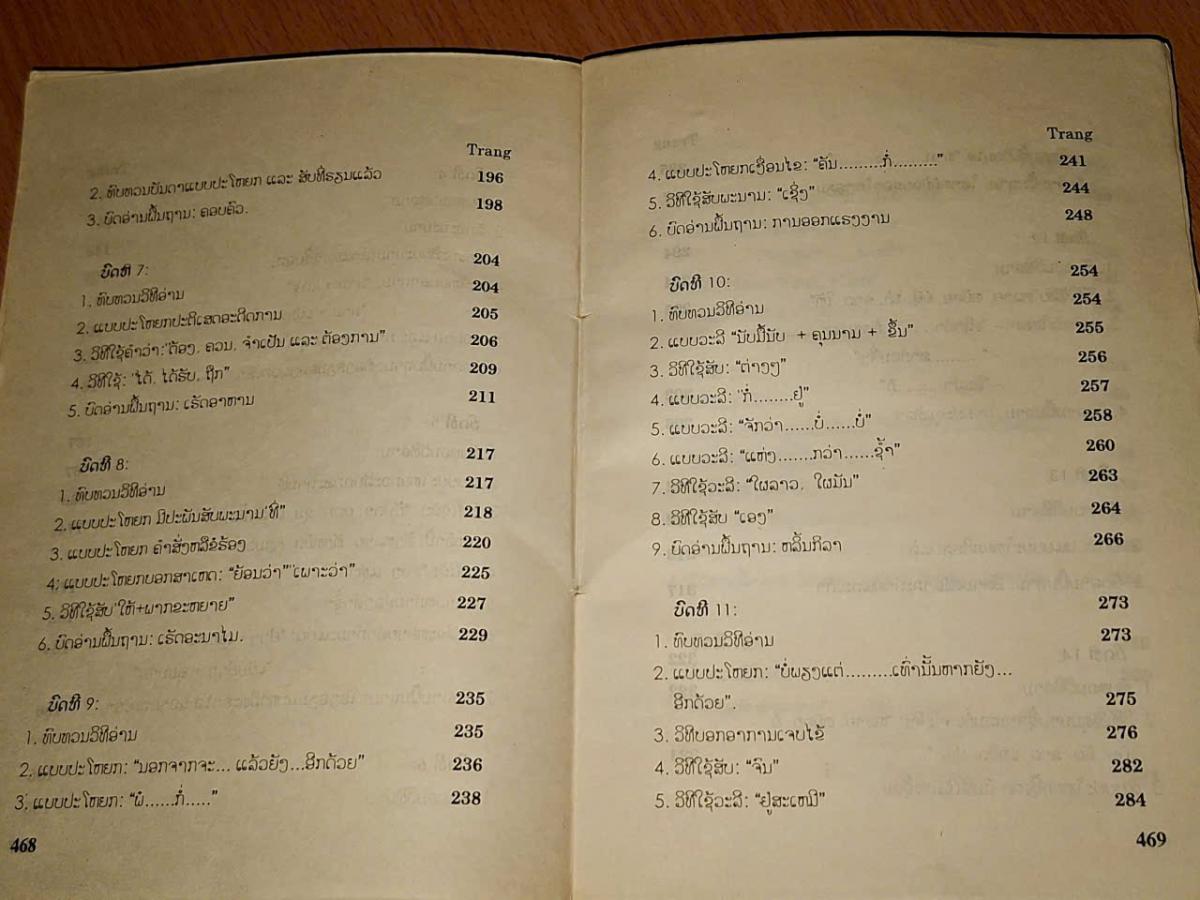 Trang
2. ທົບທວນບັນດາແບບປະໂຫຍກ ແລະ ສັບທີ່ຮຽນແລ້ວ 196
3. ບົດອ່ານພື້ນຖານ: ຄອບຄົວ. 198
ບົດທີ 7: 204
1. ທົບທວນວິທີອ່ານ 204
2. ແບບປະໂຫຍກປະຕິເສດອະດີດການ 205
3. ວິທີໃຊ້ຄຳວ່າ: "ຕ້ອງ, ຄວນ, ຈຳເປັນ ແລະ ຕ້ອງການ" 206
4. ວິທີໃຊ້: "ໄດ້, ໄດ້ຮັບ, ຖືກ" 209
5. ບົດອ່ານພື້ນຖານ: ເຮັດອາຫານ 211
ບົດທີ 8: 217
1. ທົບທວນວິທີອ່ານ 217
2. ແບບປະໂຫຍກ ມີປະພັນສັບພະນາມ "ທີ່" 218
3. ແບບປະໂຫຍກ ຄຳສັ່ງຫລືຂໍຮ້ອງ 220
4; ແບບປະໂຫຍກບອກສາເຫດ: "ຍ້ອນວ່າ" "ເພາະວ່າ" 225
5. ວິທີໃຊ້ສັບ "ໃຫ້+ພາກຂະຫຍາຍ" 227
6. ບົດອ່ານພື້ນຖານ: ເຮັດອະນາໄມ. 229
ບົດທີ 9: 235
1. ທົບທວນວິທີອ່ານ 235
2. ແບບປະໂຫຍກ: "ນອກຈາກຈະ... ແລ້ວຍັງ...ອີກດ້ວຍ" 236
3; ແບບປະໂຫຍກ: "ພໍ......ກໍ່....." 238
468
Trang
4. ແບບປະໂຫຍກເງື່ອນໄຂ: "ຄັນ.........ກໍ່........." 241
5. ວິທີໃຊ້ສັບພະນາມ: "ເຊິ່ງ" 244
6. ບົດອ່ານພື້ນຖານ: ການອອກແຮງງານ 248
ບົດທີ 10: 254
1. ທົບທວນວິທີອ່ານ 254
2. ແບບວະລີ "ນັບມື້ນັບ + ຄຸນນາມ + ຂຶ້ນ" 255
3. ວິທີໃຊ້ສັບ: "ຕ່າງໆ" 256
4. ແບບວະລີ: "ກໍ່........ຢູ່" 257
5. ແບບວະລີ: "ຈັກວ່າ......ບໍ່......ບໍ່" 258
6. ແບບວະລີ: "ແຫ່ງ.......ກວ່າ......ຊ້ຳ" 260
7. ວິທີໃຊ້ວະລີ: "ໃຜລາວ, ໃຜມັນ" 263
8. ວິທີໃຊ້ສັບ "ເອງ" 264
9. ບົດອ່ານພື້ນຖານ: ຫລິ້ນກິລາ 266
ບົດທີ 11: 273
1. ທົບທວນວິທີອ່ານ 273
2. ແບບປະໂຫຍກ: "ບໍ່ພຽງແຕ່.........ເທົ່ານັ້ນຫາກຍັງ...
ອີກດ້ວຍ". 275
3. ວິທີບອກອາການເຈບໄຂ້ 276
4. ວິທີໃຊ້ສັບ: "ຈົນ" 282
5. ວິທີໃຊ້ວະລີ: "ຢູ່ສະເຫມີ" 284
469